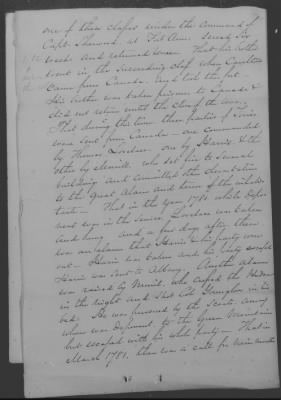 one of these classes under the command of
Capt Sherwood, at Fort Ann. Served six
weeks and returned home. That his brother
went in the succeeding class when Carleton
Came from Canada and took the fort.
His brother was taken prisoner to Canada &
did not return until the close of the war.
That during this time three parties of Tories
was sent from Canada - one commanded
by Thomas Lovelace one by Harris & the
other by who set fire to several
buildings and committed other
to the Great Alarm and terror of the inhabi
tants - That in the year 1781 while depo
nent was in the service Lovelace was taken
and hung and a few days after there
was an alarm that Harris & his party were
out - Harris was taken and his party escaped
Harris was sent to Albany. Another alarm
was raised by who crossed the Hudson
in the night and shot Col in his
bed. He was pursued by the Scouts among
whom was deponent to the Green Mountains
but escaped with his whole party - That in
March 1781, there was a call for nine months